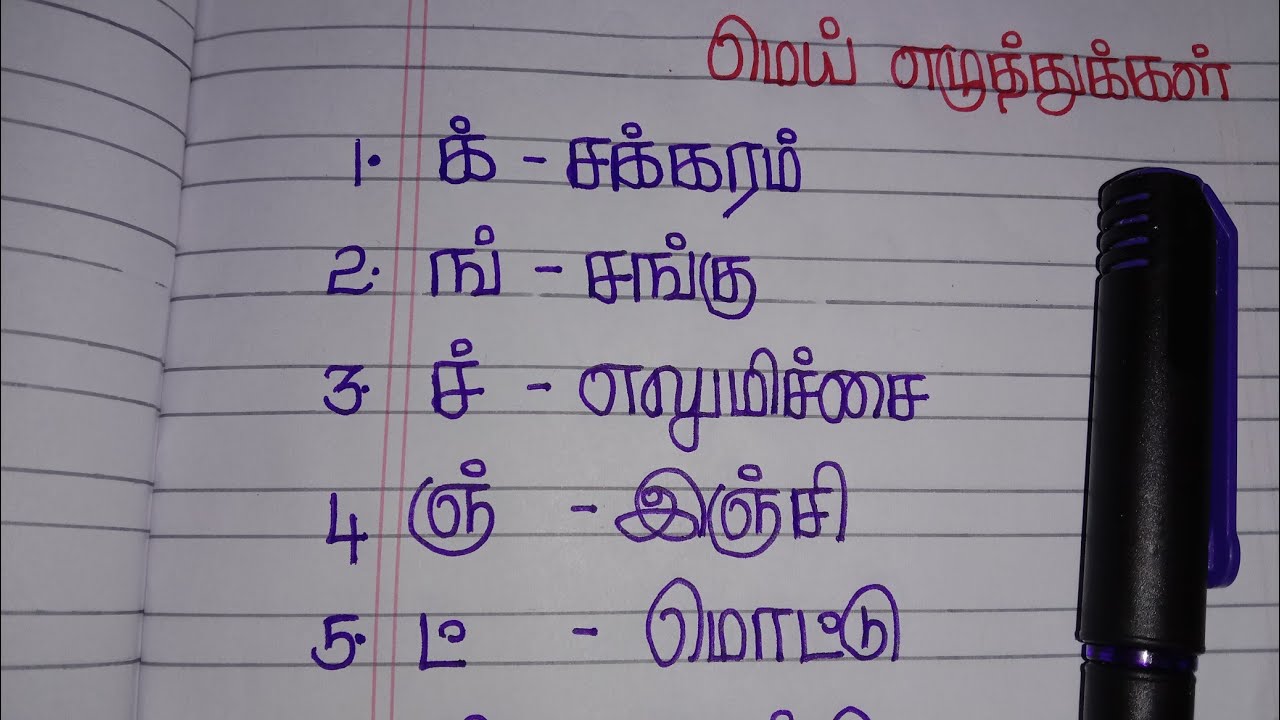 மெய் எழுத்துக்கள்
1. க் - சக்கரம்
2. ங் - சங்கு
3. ச் - எலுமிச்சை
4 ஞ் - இஞ்சி
5. ட் - மொட்டு